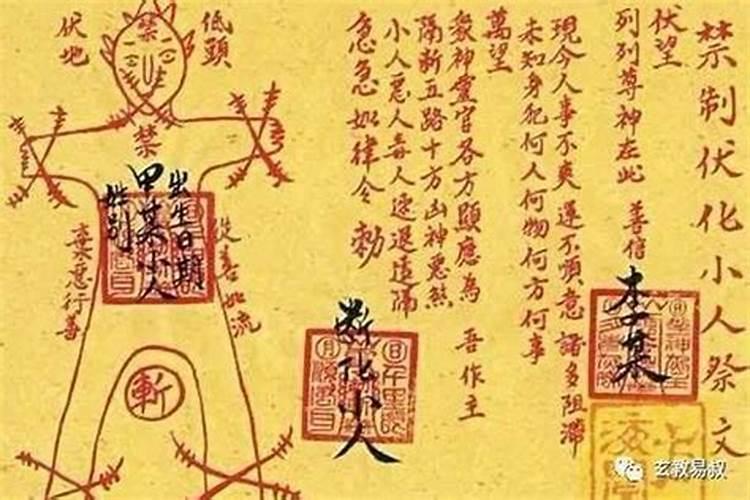 禁制伏化小人祭文
伏望
列列尊神在此 善信 李某
現今人事不爽 運不順意 諸多阻滯
未知身犯何人何物何方何事
萬望
眾神靈官各方顯應為 吾作主
隔斷五路十方凶神惡煞
小人惡人毒人速退遠隔
急急如律令 勅
斷化小人
低頭
伏地
禁
禁
出生日期
甲某小人
姓別
棄惡行善
從善如流
斬
玄教易叔